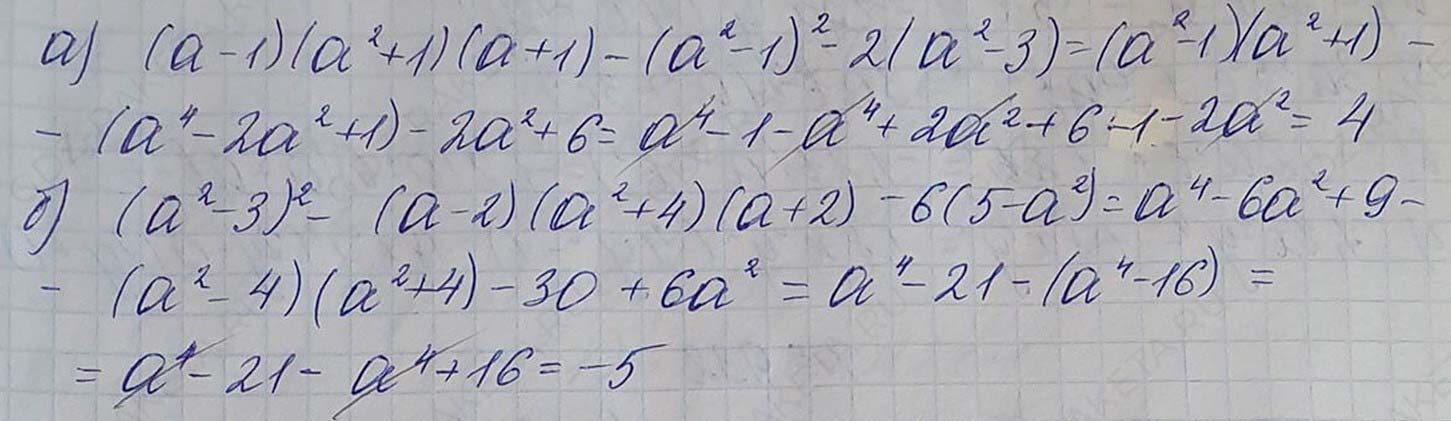 а) (a-1)(a²+1)(a+1)-(a²-1)²-2(a²-3)=(a²-1)(a²+1)-
-(a⁴-2a²+1)-2a²+6=a⁴-1-a⁴+2a²+6-1-2a²=4
б) (a²-3)²-(a-2)(a²+4)(a+2)-6(5-a²)=a⁴-6a²+9-
-(a²-4)(a²+4)-30+6a²=a⁴-21-(a⁴-16)=
=a⁴-21-a⁴+16=-5